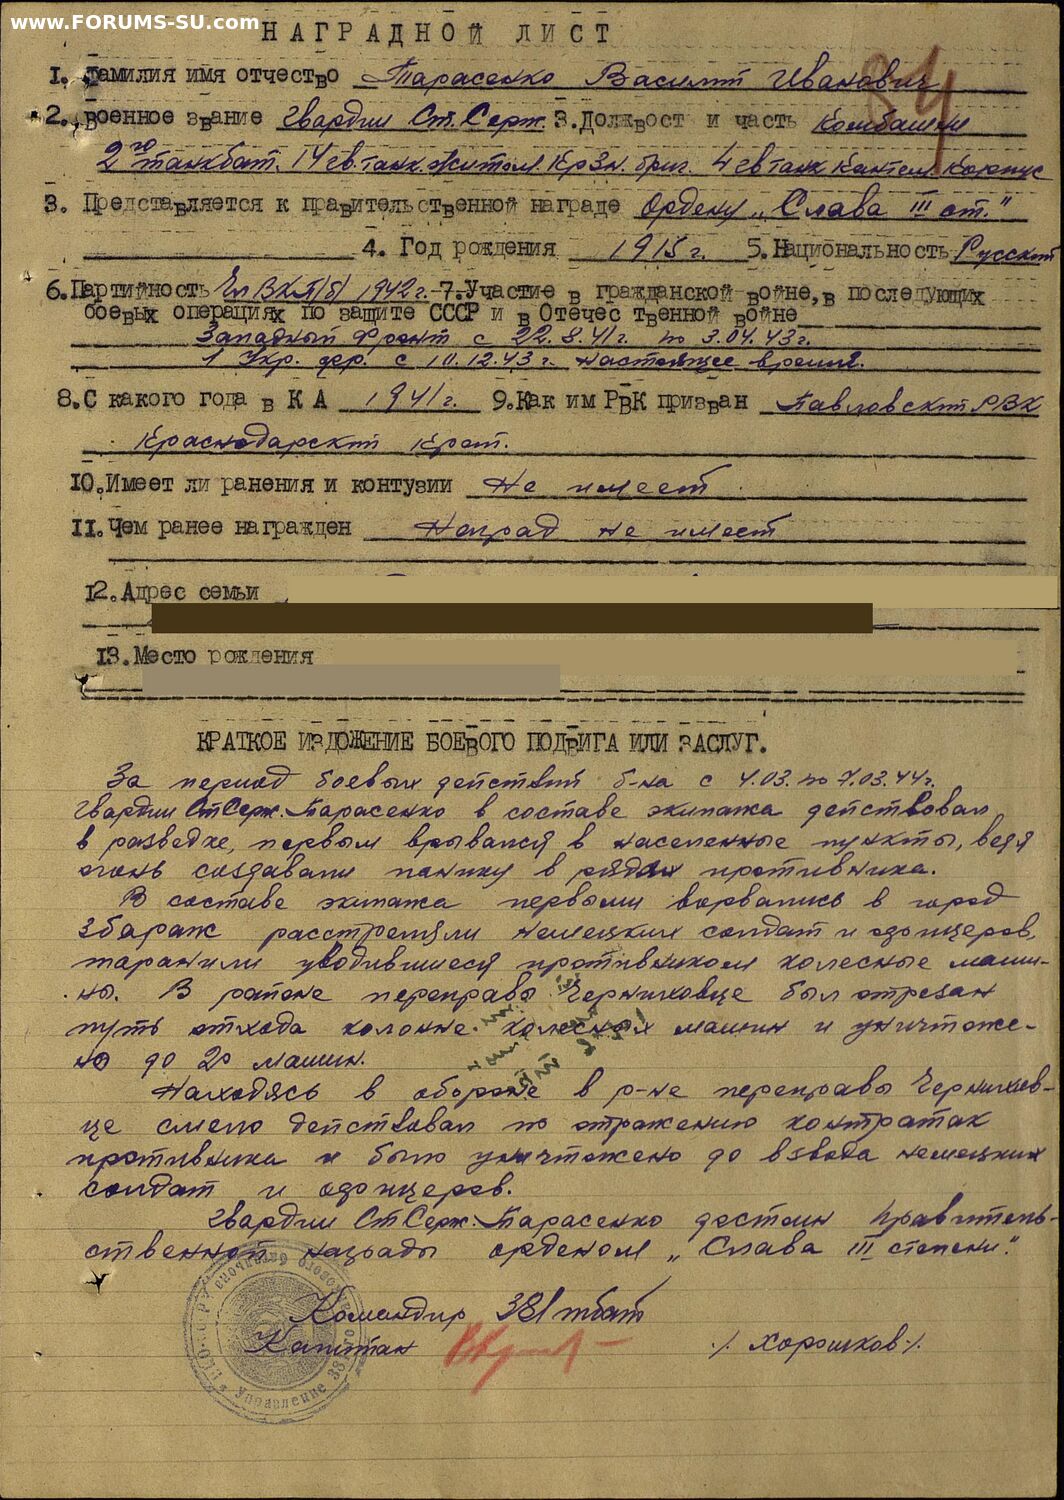 www.FORUMS-SU.com
НАГРАДНОЙ ЛИСТ
84
1. Фамилия имя отчество Тарасенко Василий Иванович
2. Военное звание Гвардии Ст. Серж. 3. Должност и часть Комбашни
2го танкбат. 14 гв танк. Житом. Кр Зн. бриг. 4 гв танк Кантем. Корпус
3. Представляется к правительственной награде Ордену „Слава III ст."
4. Год рождения 1915 г. 5. Национальность Русский
6. Партийность Чл ВКП/б/ 1942 г. 7. Участие в гражданской войне, в последующих
боевых операциях по защите СССР и в Отечес твенной войне
Западный Фронт с 22.8.41г. по 3.04.43г.
1 Укр. фр. с 10.12.43г. настоящее время.
8. С какого года в К А 1941г. 9. Как им РВК призван Павловский РВК
Краснодарский край.
10. Имеет ли ранения и контузии Не имеет
11. Чем ранее награжден Наград не имеет
12. Адрес семьи
13. Место рождения
КРАТКОЕ ИЗЛОЖЕНИЕ БОЕВОГО ПОДВИГА ИЛИ ЗАСЛУГ.
За период боевых действий б-на с 4.03. по 7.03.44г.
Гвардии Ст Серж. Тарасенко в составе экипажа действовал
в разведке, первым врывался в населенные пункты, ведя
огонь создавали панику в рядах противника.
В составе экипажа первыми ворвались в город
Збараж расстреляли немецких солдат и офицеров,
таранили уводившиеся противником колесные маши-
ны. В районе переправы Черниховце был отрезан
путь отхода колонне колесных машин и уничтоже-
но до 20 машин.
Находясь в обороне в р-не переправы Чернихов-
це смело действовал по отражению контратак
противника и было уничтожено до взвода немецких
солдат и офицеров.
Гвардии Ст Серж. Тарасенко достоин правитель-
ственной награды орденом „Слава III степени."
Командир 381 тбат
Капитан /Хорошков/.
Управление